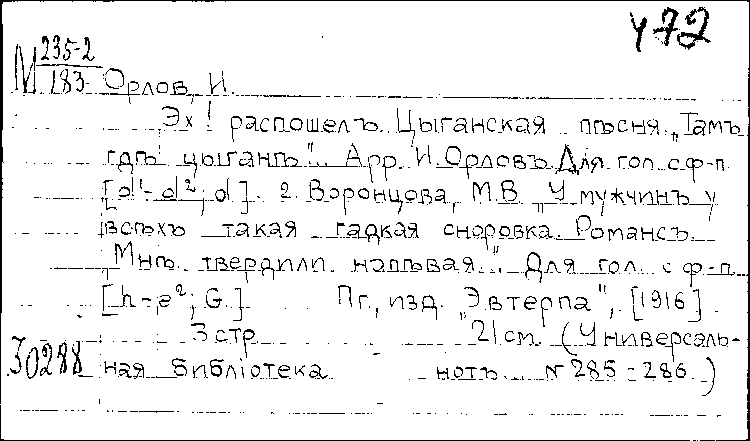 472
М 235-2
183 Орлов, И.
Эх! распошелъ. Цыганская пѣсня „Тамъ
гдѣ цыганъ"... Арр. И. Орловъ. Для гол. с ф-п.
[d¹-d²; d]. 2. Воронцова, М.В. „У мужчинъ у
всѣхъ такая гадкая сноровка. Романсъ.
„Мнѣ твердили напѣвая..." Для гол. с ф-п.
[h-g²; G.] Пг., изд. „Эвтерпа", [1916]
3 стр. 21 см. (Универсаль-
30288 ная библіотека нотъ. № 285-286.)